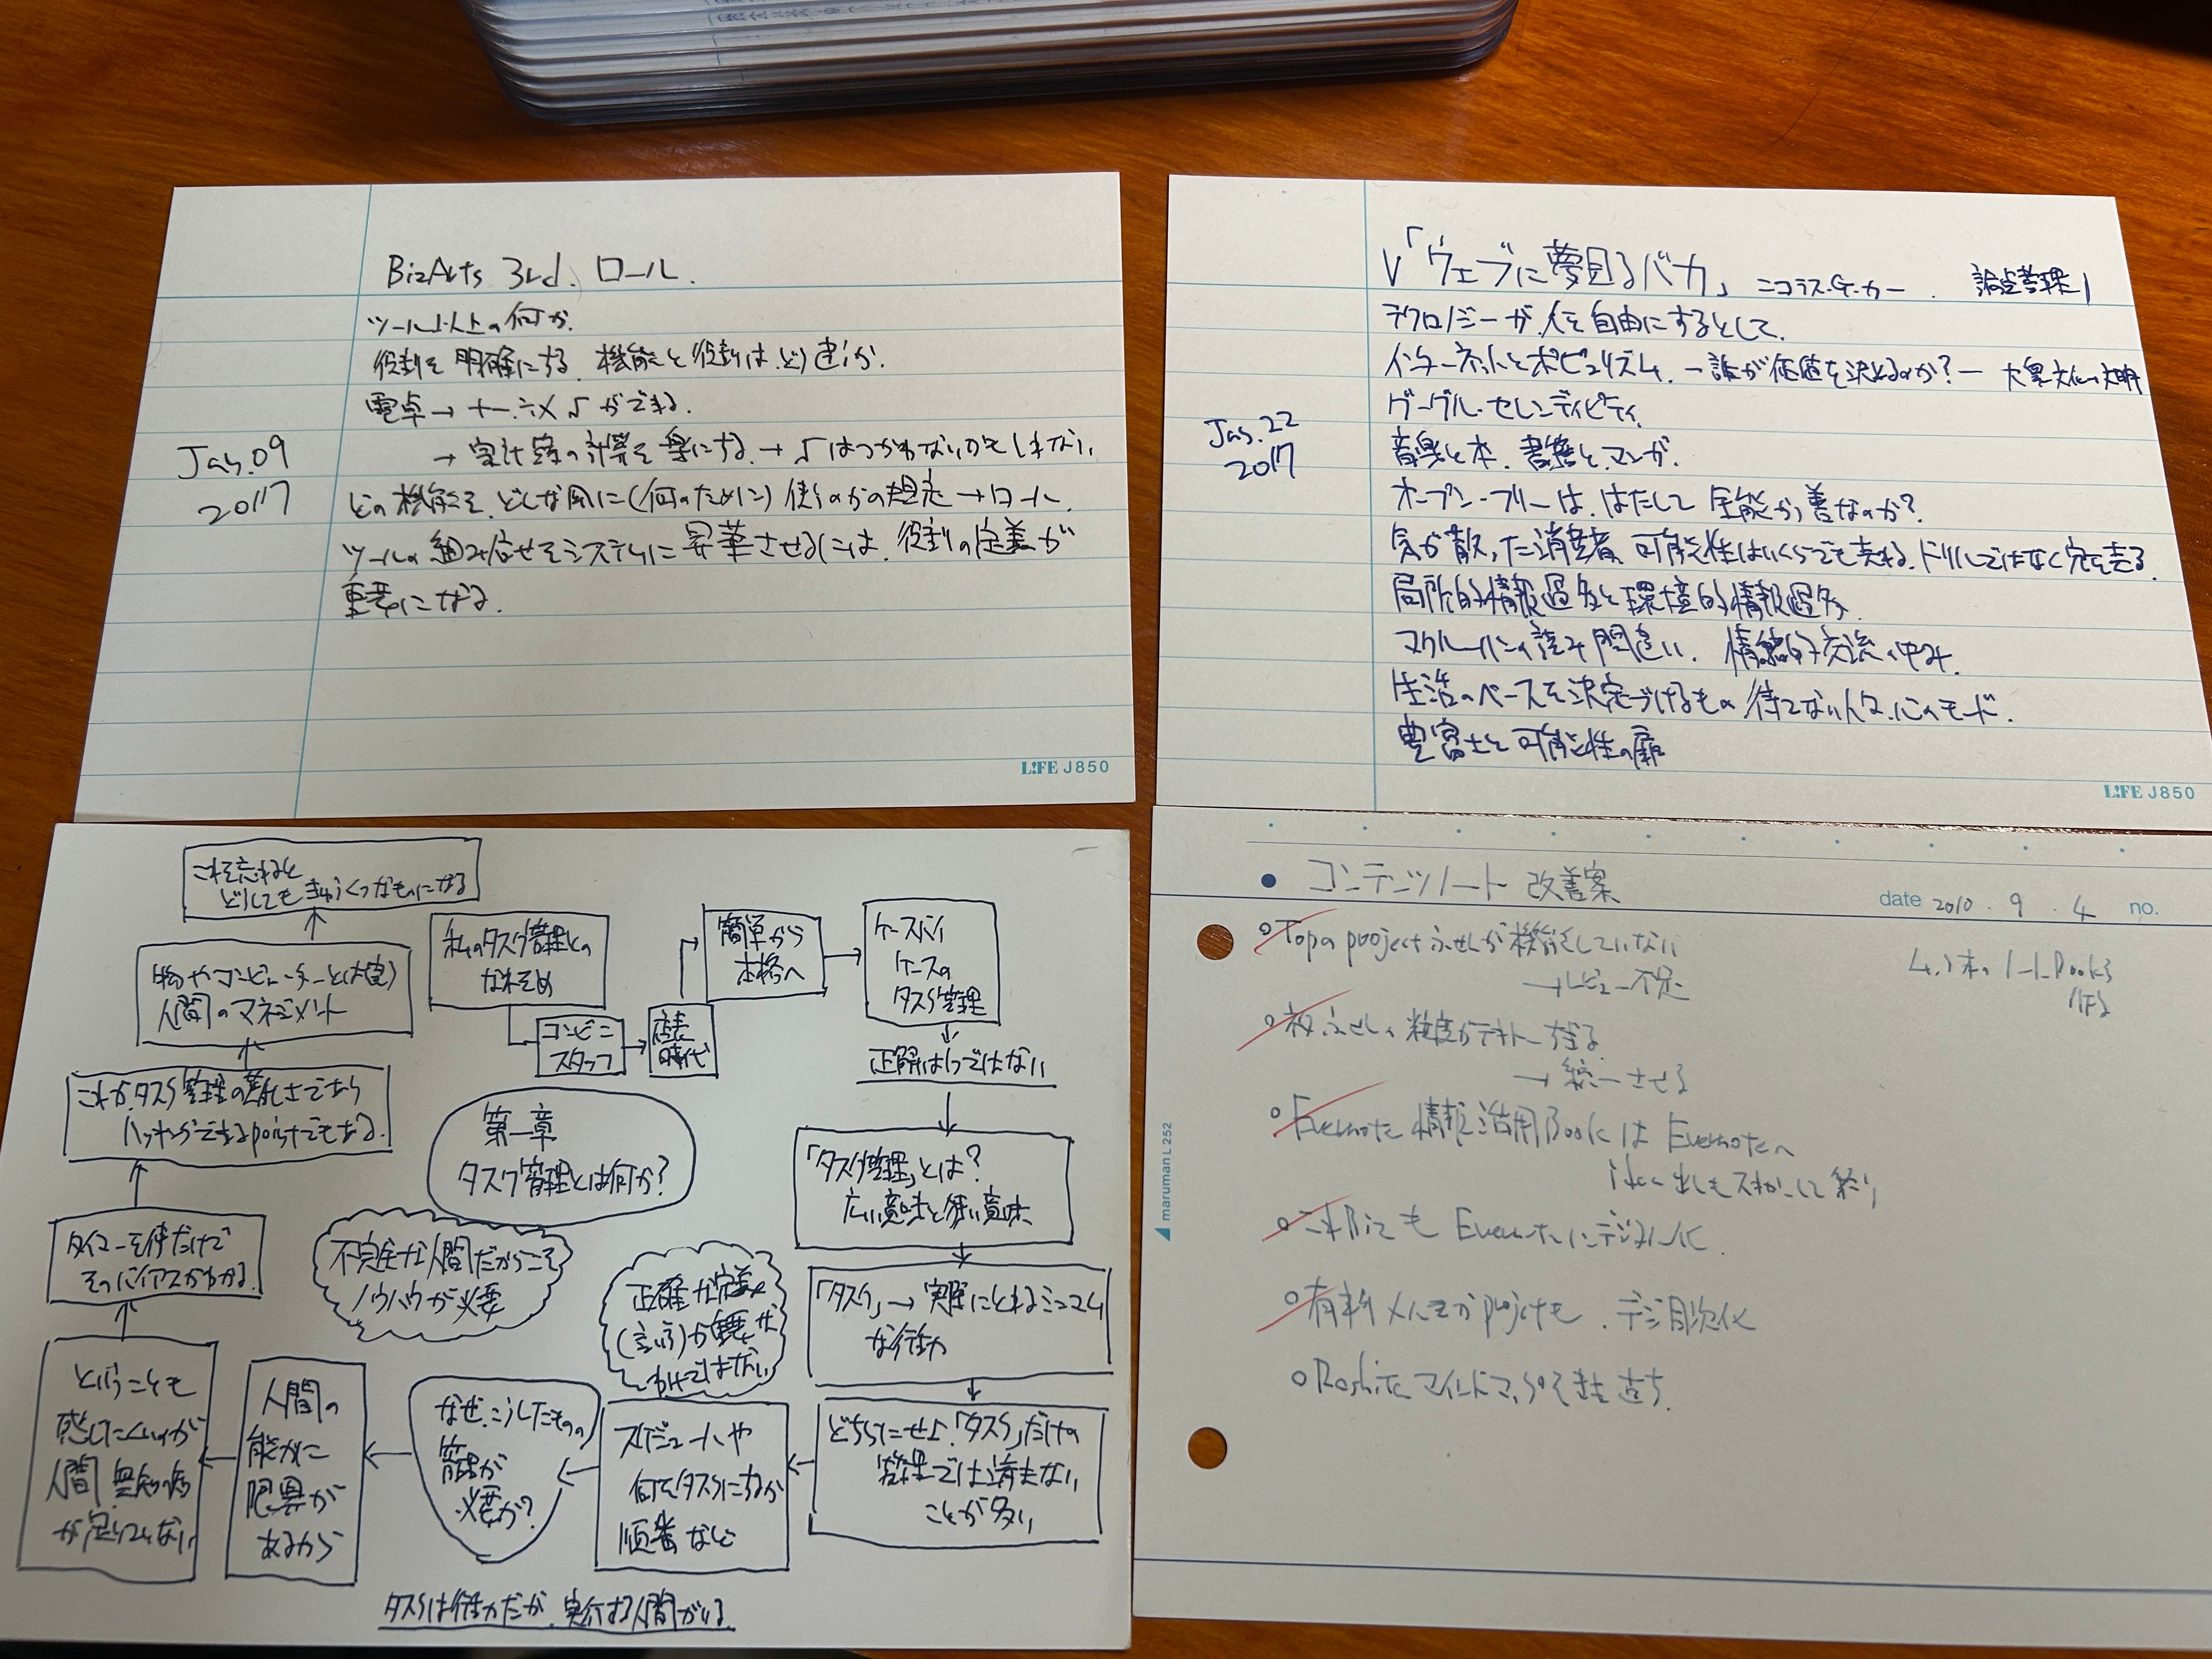 BizArts 3rd. ロール.
ツール以上の何か.
役割を明確にする. 機能と役割はどう違うか.
電卓→ +-÷× √ ができる.
→ 家計簿の計算を楽にする → √はつかわないかもしれない
どの機能を、どんな風に(何のために)使うのかの規定→ロール.
ツールの組み合せをシステムに昇華させるには、役割の定義が
重要になる.
Jan.09
2017
L!FE J850
「ウェブに夢見るバカ」 ニコラス・G・カー.
テクノロジーが人を自由にするとして.
インターネットとポピュリズム. ー誰が価値を決めるのか?ー 大衆文化の文明
グーグル・セレンディピティ
音楽と本. 書籍とマンガ.
オープン・フリーは、はたして全能かつ善なのか?
気が散った消費者 可能性はいくらでも売れる. ドリルではなく穴を売る
局所的情報過多と環境的情報過多.
マクルーハンの読み間違い. 情緒的交流の中み.
生活のペースを決定づけるもの 待てない人々. 心のモード.
豊富さと可能性の扉
Jan.22
2017
L!FE J850
これを忘れると
どうしてもきゅうくつなものになる
物やコンピューターとは(違う)
人間のマネジメント
これが、タスク管理の難しさであり
ハッキングできるpointでもある.
タイマーを使だけで
そのバイアスがわかる.
ということも
感じにくいのが
人間 無知の知
が足りてない
人間の
能力に
限界が
あるから
なぜ、こうしたものの
管理が
必要か?
スケジュールや
何をタスクにするか
順番など
私のタスク管理との
なれそめ
コンビニ
スタッフ
店長
時代
簡単から
本格へ
ケースバイ
ケースの
タスク管理
正解は1つではない
「タスク管理」とは?
広い意味と狭い意味
「タスク」→実際にとれるミニマム
な行動
どちらにせよ「タスク」だけの
管理では済まない
ことが多い
第一章
タスク管理とは何か?
不完全な人間だからこそ
ノウハウが必要
正確な定義
(言い方)が重要な
わけではない
タスクは行動だが、実行する人間がいる.
コンテンツノート 改善案
date 2010 . 9 . 4 no.
Topのprojectふせんが機能をしていない
→レビュー不足
ふせんの粒度がテキトーすぎる
→ 統一させる
Evernote 情報活用BookはEvernoteへ
もEvernoteにデジタル化.
有料メルマガprojectも、デジタル化
Roshitaマインドマップを
maruman L252